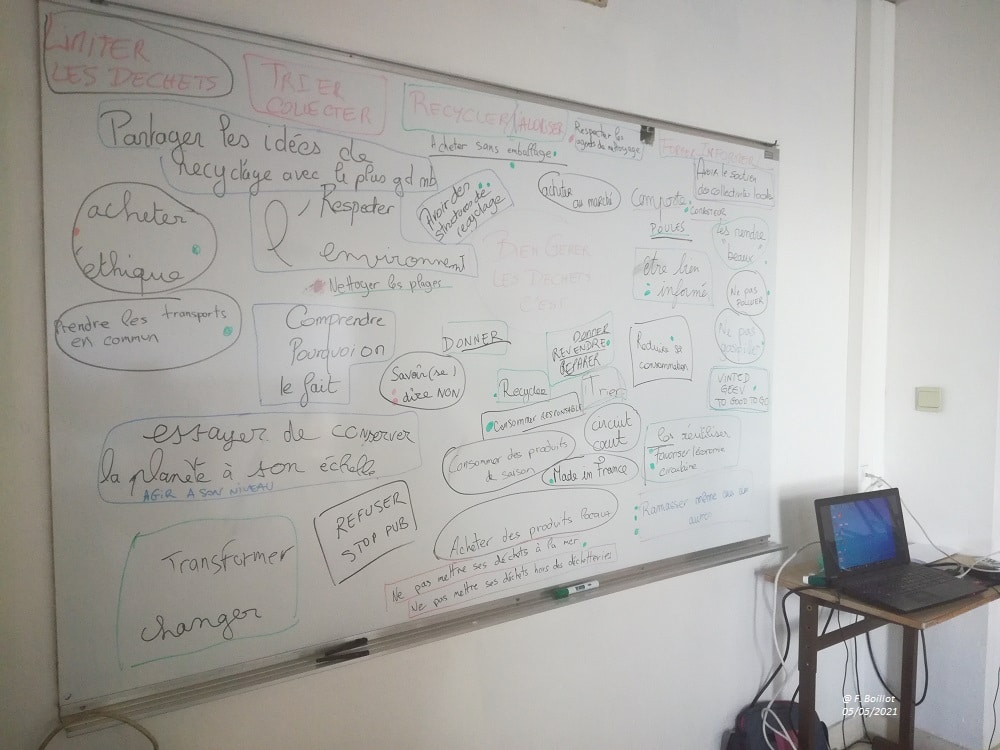 LIMITER
LES DECHETS
TRIER
COLLECTER
RECYCLER/VALORISER
Respecter les
agents de nettoyage
FORMER INFORMER
Partager les idées de
recyclage avec le plus gd nb
Acheter sans emballage
Avoir le soutien
des collectivités locales
acheter
éthique
Respecter
l'environnement
Avoir des
structures de
recyclage
acheter
au marché
Composter
POULES
Les rendre
"beaux"
Nettoyer les plages
BIEN GERER
LES DECHETS
C'EST
être bien
informé
Ne pas
POLLUER
Prendre les transports
en commun
Comprendre
Pourquoi on
le fait
DONNER
DONNER
REVENDRE
REPARER
Réduire sa
consommation
Ne pas
gaspiller
Savoir (se)
dire NON
Recycler
Trier
VINTED
GEEV
TO GOOD TO GO
CONSOMMER RESPONSABLE
circuit
court
essayer de conserver
la planète à son échelle
AGIR A SON NIVEAU
Consommer des produits
de saison
Made in France
les réutiliser
favoriser l'économie
circulaire
REFUSER
STOP PUB
Acheter des produits locaux
Ramasser même ceux des
autres
Transformer
changer
Ne pas mettre ses déchets à la mer
Ne pas mettre ses déchets hors des déchetteries
@ F. Boillot
05/05/2021